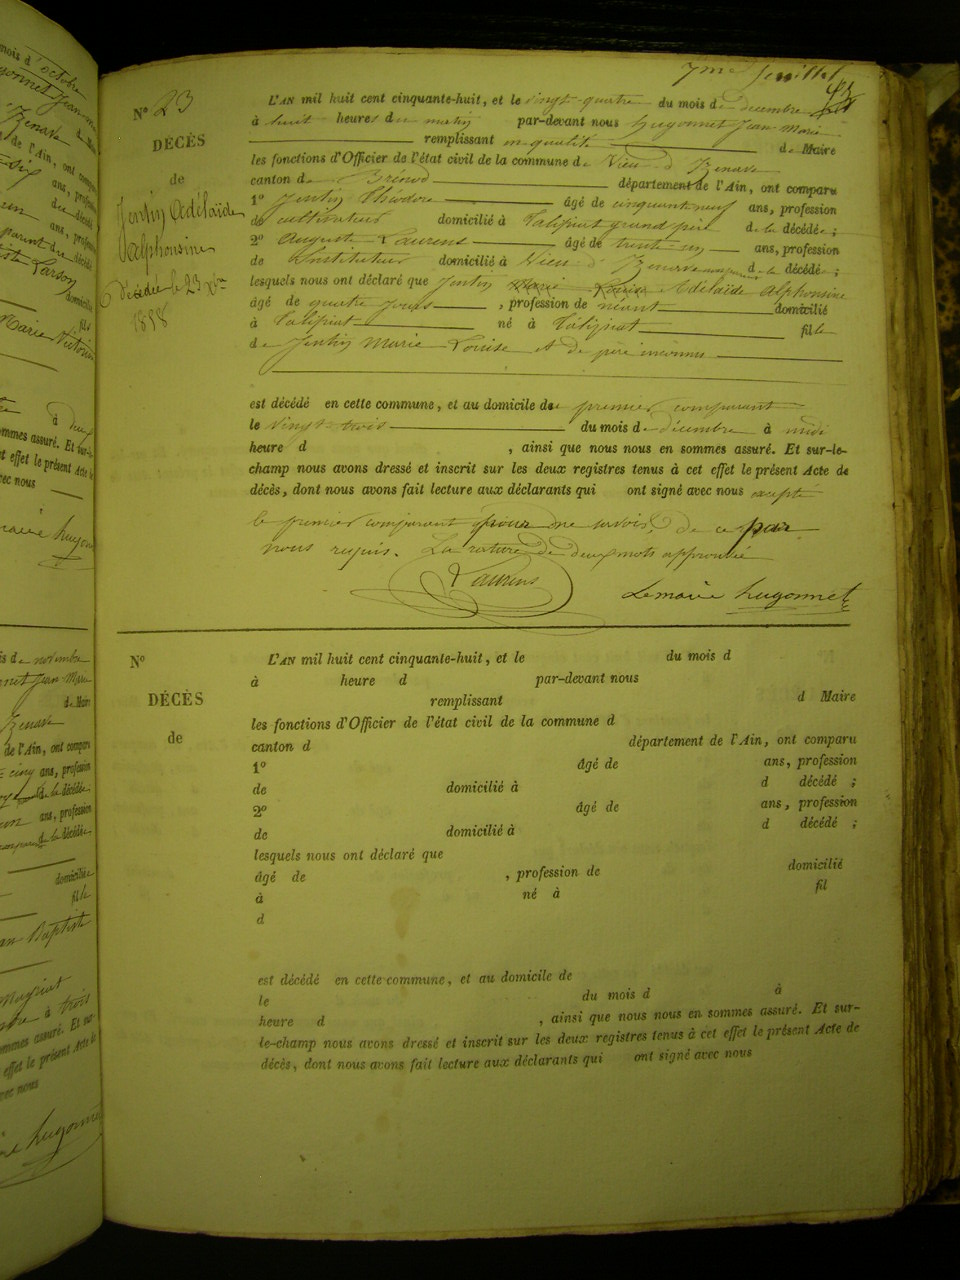 7me feuillet
No 23
DÉCÈS
de
Jentin Adélaïde
Alphonsine
Décédée le 23 Xbre
1858
L'AN mil huit cent cinquante-huit, et le vingt-quatre du mois de décembre
à huit heures du matin par-devant nous hugonnet Jean-Marie
remplissant en qualité de Maire
les fonctions d'Officier de l'état civil de la commune de Vieu d'Izenave
canton de Brénod département de l'Ain, ont comparu
1o Jentin Théodore âgé de cinquante neuf ans, profession
de cultivateur domicilié à Talipiat grand père de la décédée ;
2o Auguste Laurens âgé de trente un ans, profession
de Instituteur domicilié à Vieu d'Izenave non parent de la décédée ;
lesquels nous ont déclaré que Jentin Marie Louise Adélaïde alphonsine
âgé de quatre jours , profession de néant domicilié
à Talipiat né à Talipiat fille
de Jentin Marie Louise et de père inconnu
est décédé en cette commune, et au domicile du premier comparant
le vingt-trois du mois de décembre à midi
heure d , ainsi que nous nous en sommes assuré. Et sur-le-
champ nous avons dressé et inscrit sur les deux registres tenus à cet effet le présent Acte de
décès, dont nous avons fait lecture aux déclarants qui ont signé avec nous excepté
le premier comparant pour ne savoir de ce par
nous requis. La rature de deux mots approuvée
Laurens
Le maire hugonnet
No
DÉCÈS
de
L'AN mil huit cent cinquante-huit, et le du mois d
à heure d par-devant nous
remplissant d Maire
les fonctions d'Officier de l'état civil de la commune d
canton d département de l'Ain, ont comparu
1o âgé de ans, profession
de domicilié à d décédé ;
2o âgé de ans, profession
de domicilié à d décédé ;
lesquels nous ont déclaré que
âgé de , profession de domicilié
à né à fil
d
est décédé en cette commune, et au domicile de
le du mois d à
heure d , ainsi que nous nous en sommes assuré. Et sur-
le-champ nous avons dressé et inscrit sur les deux registres tenus à cet effet le présent Acte de
décès, dont nous avons fait lecture aux déclarants qui ont signé avec nous